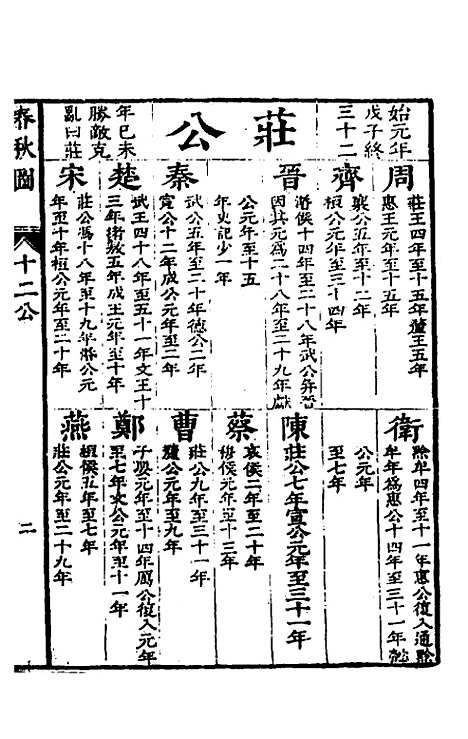 始元年
戊子終
三十二
莊公
年己未
勝敵克
亂曰莊
周
莊王四年至十五年釐王五年
惠王元年至十五年
齊
襄公五年至十二年
桓公元年至二十四年
晉
湣侯十四年至二十八年武公并晉
因其元爲二十八年至二十九年獻
公元年至十五
年史記少一年
秦
武公五年至二十年德公二年
宣公十二年成公元年至二年
楚
武王四十八年至五十一年文王十
三年堵敖五年成王元年至十年
宋
莊公馮十八年至十九年湣公元
年至十年桓公元年至二十年
衛
黔牟四年至十一年惠公復入通黔
牟年爲惠公十四年至三十一年懿
公元年
至七年
陳
莊公七年宣公元年至三十一年
蔡
哀侯二年至二十年
穆侯元年至十三年
曹
莊公九年至三十一年
釐公元年至九年
鄭
子嬰元年至十四年厲公復入元年
至七年文公元年至十一年
燕
桓侯五年至七年
莊公元年至二十九年
春秋圖
十二公
二